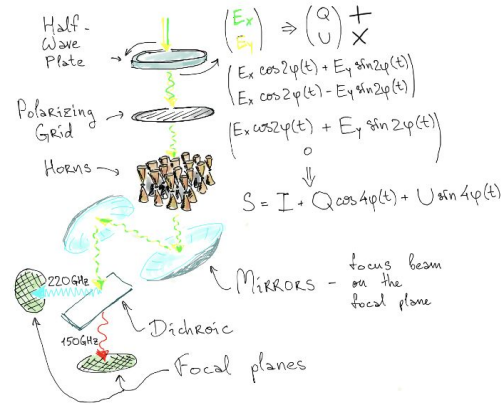 Half-
Wave
Plate
(Ex Ey) ⇒ (Q U) + ×
(Ex cos2φ(t) + Ey sin2φ(t)
Ex cos2φ(t) - Ey sin2φ(t))
Polarizing
Grid
(Ex cos2φ(t) + Ey sin2φ(t)
0)
⇓
Horns
S = I + Q cos4φ(t) + U sin4φ(t)
MIRRORS - focus beam
on the
focal plane
220GHz
Dichroic
150GHz
Focal planes